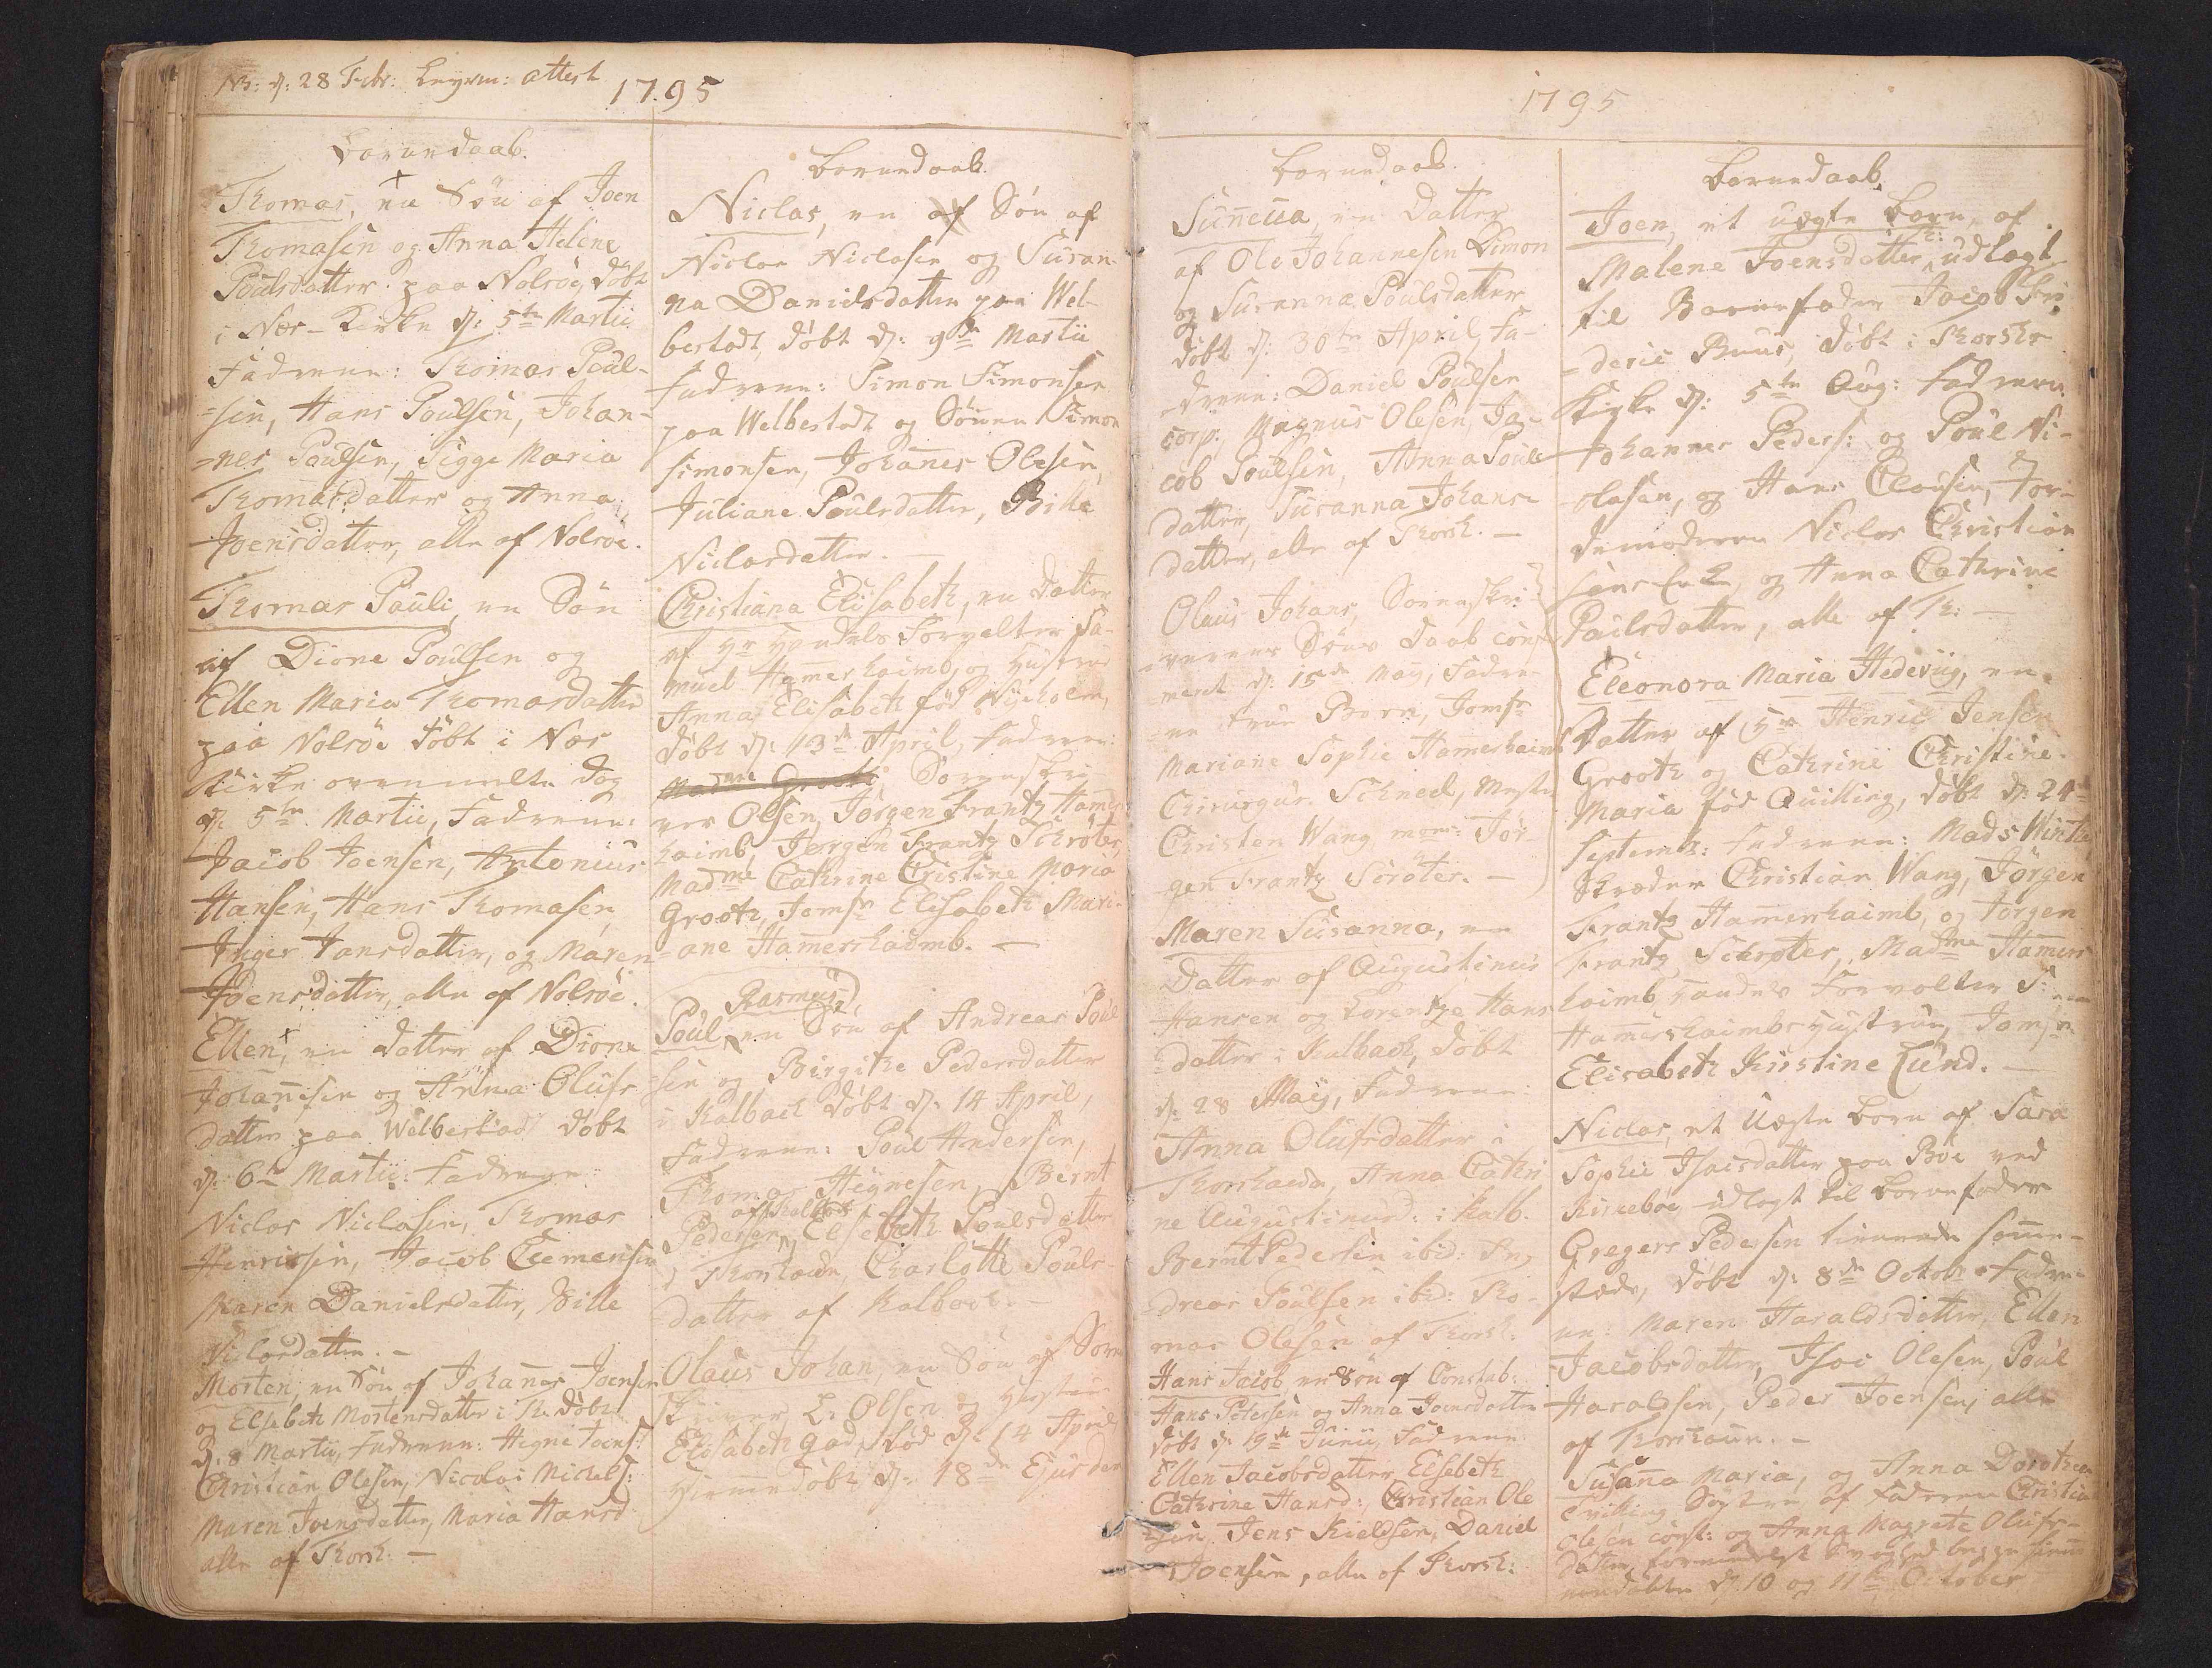 NB: d: 28 Febr: Leyerm: attest
1795
Børnedaab.
Thomas, en Søn af Joen
Thomasen og Anna Helene
Poulsdatter paa Nolsöe, döbt
i Nær-Kirke d: 5te Martii
Fadrene: Thomas Poul-
=sen, Hans Poulsen, Johan-
=nes Poulsen, Sigge Maria
Thomasdatter og Anna
Joensdatter, alle af Nolsöe.
Thomas Pauli, en Sön
af Dione Poulsen og
Ellen Maria Thomasdatter
paa Nolsöe döbt i Nær
Kirke ovenmelte Dag
d: 5te Martii, Fadrene:
Jacob Joensen, Antonius
Hansen, Hans Thomasen,
Inger Jansdatter, og Maren
Joensdatter, alle af Nolsöe.
Ellen, en Datter af Dione
Johannesen og Anna Olufs
datter paa Welbestad döbt
d: 6te Martii: Fadrene
Niclas Niclasen, Thomas
Henricsen, Jacob Clemensen
Karen Danielsdatter, Bille
Niclasdatter. -
Morten, en Sön af Johannes Joensen
og Elsebeth Mortensdatter i Th. döbt
d: 8 Martii, Fadrene: Hegne Joens:
Christian Olesen, Nicolai Michels:
Maren Joensdatter, Maria Hansd
alle af Thorsh: -
Børnedaab.
Niclas, en af Sön af
Niclas Niclasen og Susan-
na Danielsdatter paa Wel-
bestadt, döbt d: 9de Martii
Fadrene: Simon Simonsen
paa Welbestadt og Sönnen Simon
Simonsen, Johannes Olesen,
Juliane Poulsdatter, Bille
Niclasdatter. -
Christiana Elisabeth, en Datter
af Hr Handels Forvalter Sa-
muel Hamershaimb, og Hustrue
Anna Elisabeth föd Nyeholm,
döbt d: 13de April, Fadrene:
Madme Grooth Sorenskri-
ver Olsen, Jörgen Frantz Hamers
haimb, Jörgen Frantz Schröter,
Madme Cathrine Cristine Maria
Grooth, Jomfr Elisabeth Mari-
=ane Hamershaimb. -
Rasmus,
Poul, en Sön af Andreas Poul
=sen og Birgithe Pedersdatter
i Kalbach döbt d: 14 April,
Fadrene: Poul Andersen,
Thomas Hegnesen, Bernt
af Kalbak
Pedersen, Elsebeth Poulsdatter
i Thorshavn, Charlotte Pouls-
datter af Kalbach.
Olaus Johan, en Sön af Soren
skriver L: Olsen og Hustrue
Elisabeth Gad, föd d: 14 April
Hiemmedöbt d: 18de Ejusdem
1795
Børnedaab.
Sunneva, en Datter
af Ole Johannesen Simon
og Susanna Poulsdatter
döbt d: 30te April, Fa-
=drene: Daniel Poulsen
corp: Magnus Olesen, Ja-
cob Poulsen, Anna Pouls
datter, Susanna Johans-
datter, alle af Thorsh. -
Olaus Johans, Sorenskri-
=verens Söns Daab conf-
=meret d: 15de May, Fadre-
=ne Frue Born, Jomfr
Mariane Sophie Hamershaimb
Chirurgus Schneel, Mester
Christen Wang, mons: Jör-
gen Frantz Scröter. -
Maren Susanna, en
Datter af Augustinus
Hansen og Lorentze Hans
=datter i Kalbach, döbt
d: 28 Maij, Fadrene:
Anna Olufsdatter i
Thorshavn, Anna Cathri
ne Augustinusd: i Kalb.
Bernt Pedersen ibid: An-
=dreas Poulsen ibid: Tho-
mas Olesen af Thorsh:
Hans Jacob en Sön af Constab:
Hans Petersen og Anna Joensdatter
döbt d: 19de Junii, Fadrene
Ellen Jacobsdatter, Elsebeth
Cathrine Hansd:, Christian Ole
=sen, Jens Kieldsen, Daniel
Joensen, alle af Thorsh:
Børnedaab.
Joen, et uægte Barn, af
Malene Joensdatter, Th: udlagt
til Barnefader Jacob Fri-
=deric Buus, döbt i Thorshs
Kirke d: 5te Aug: Fadrene:
Johannes Peders: og Poul Ni-
=clasen, og Hans Clausen, Jor-
demoderen Niclas Christian
sens Enke, og Anna Cathrine
Poulsdatter, alle af Th: -
Eleonora Maria Hedevig, en
Datter af Hr Henric Jensen
Grooth og Cathrine Christine
Maria föd Quilling, döbt d: 24de
Septemb: Fadrene: Mads Winther,
Skræder Christian Wang, Jörgen
Frantz Hamershaimb, og Jörgen
Frantz Schröter, Madme Hamers
haimb, Handels Forvalter S:
Hamershaimbs Hustrue, Jomfr
Elisabeth Kristine Lund. -
Niclas, et Uægte Barn af Sara
Sophie Isaisdatter paa Böe ved
Kirkeböe udlagt til Barnefader
Gregers Pedersen tienende samme-
stæds, döbt d: 8de Octobr Fadre-
ne: Maren Haraldsdatter, Ellen
Jacobsdatter, Isac Olesen, Poul
Haraldsen, Peder Joensen, alle
af Thorshavn. -
Susanna Maria, og Anna Dorothea
Tvilling Söstre, af Fadren Christian
Olesen const: og Anna Magrete Olufs-
datter, formedelst Svaghed begge hiemme
döbte d: 10 og 11te October